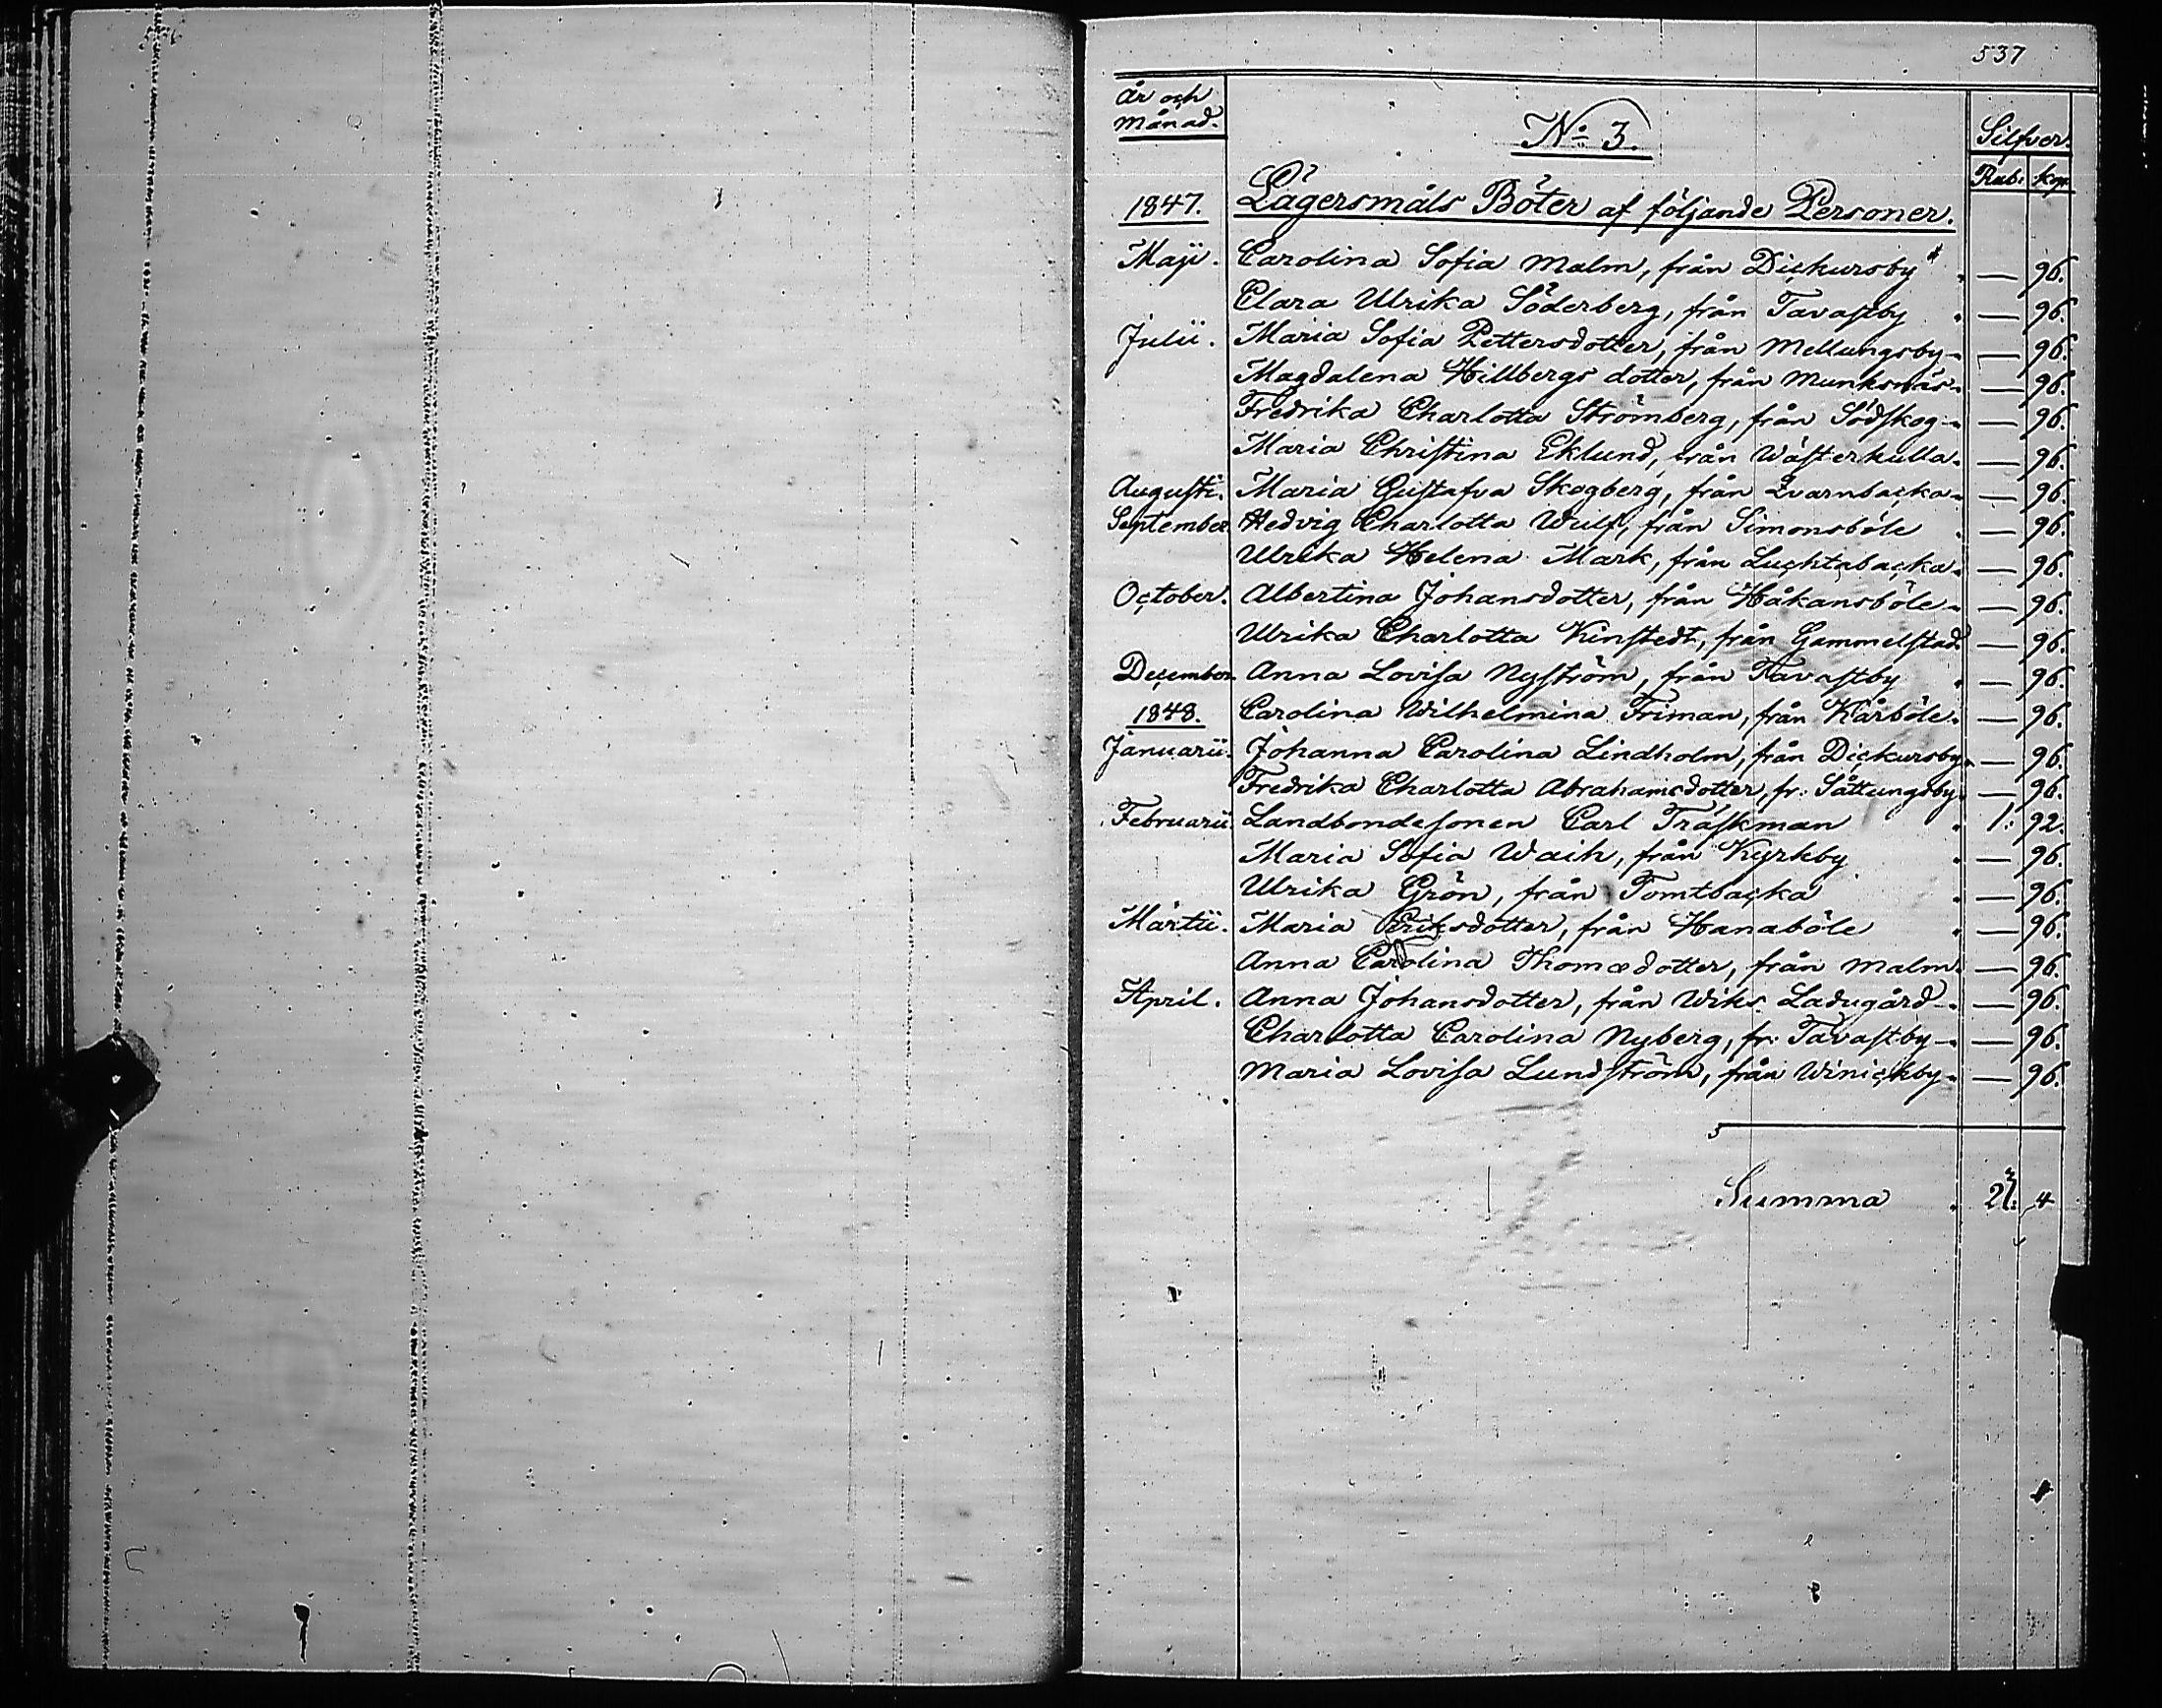 537
År och
månad.
No 3.
Silfver.
Rub: kop
1847. Lägersmåls Böter af följande Personer.
Maji. Carolina Sofia Malm, från Dickursby . — 96.
Clara Ulrika Söderberg, från Tavastby . — 96.
Julii. Maria Sofia Pettersdotter, från Mellungsby . — 96.
Magdalena Hillbergs dotter, från Munksnäs . — 96.
Fredrika Charlotta Strömberg, från Södskog . — 96.
Maria Christina Eklund, från Wästerkulla . — 96.
Augusti. Maria Gustafva Skogberg, från Qvarnbacka . — 96.
September. Hedvig Charlotta Wulf, från Simonsböle . — 96.
Ulrika Helena Mark, från Luchtabacka . — 96.
October. Albertina Johansdotter, från Håkansböle . — 96.
Ulrika Charlotta Kinstedt, från Gammelstad — 96.
December. Anna Lovisa Nyström, från Tavastby . — 96.
1848. Carolina Wilhelmina Friman, från Kårböle . — 96.
Januarii. Johanna Carolina Lindholm, från Dickursby . — 96.
Fredrika Charlotta Abrahamsdotter, fr: Såttungsby . — 96.
Februarii. Landbondesonen Carl Träskman . 1: 92.
Maria Sofia Waih, från Kyrkby . — 96.
Ulrika Grön, från Tomtbacka . — 96.
Martii. Maria Eriksdotter, från Hanaböle . — 96.
Anna Carolina Thomædotter, från Malm . — 96.
April. Anna Johansdotter, från Wiks Ladugård . — 96.
Charlotta Carolina Nyberg, fr: Tavastby . — 96.
Maria Lovisa Lundström, från Winickby . — 96.
Summa . 23: 4